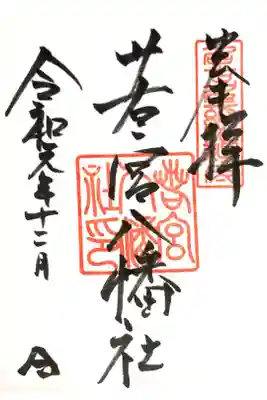 奉拝
若宮八幡社
令和元年十二月
若宮
八幡
社印